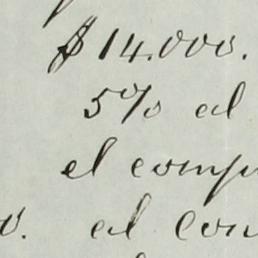 $14.000.
5% al
el comp
al con